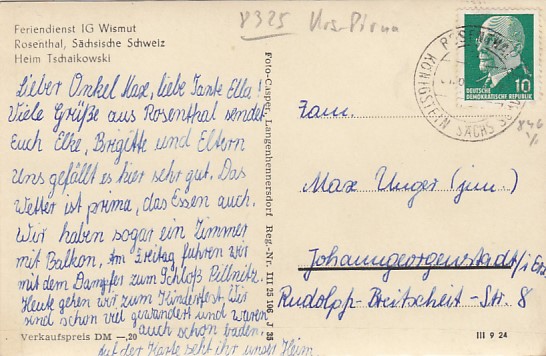 Feriendienst IG Wismut
Rosenthal, Sächsische Schweiz
Heim Tschaikowski
Lieber Onkel Maxe, liebe Tante Ella!
Viele Grüße aus Rosenthal sendet
Euch Elke, Brigitte und Eltern
Uns gefällt es hier sehr gut. Das
Wetter ist prima, das Essen auch.
Wir haben sogar ein Zimmer
mit Balkon. Am Freitag fuhren wir
mit dem Dampfer zum Schloß Pillnitz.
Heute gehen wir zum Kinderfest. Wir
sind schon viel gewandert und waren
auch schon baden.
Auf der Karte seht ihr unser Heim
Verkaufspreis DM —,20
Foto-Casper, Langenhennersdorf Reg.-Nr. III 25 106 J 35
8325 Krs-Pirna
DEUTSCHE
DEMOKRATISCHE REPUBLIK
10
KÖNIGSTEIN SÄCHS
Fam.
Max Unger (jun.)
Johanngeorgenstadt/i Erz
Rudolph-Breitscheit-Str. 8
III 9 24